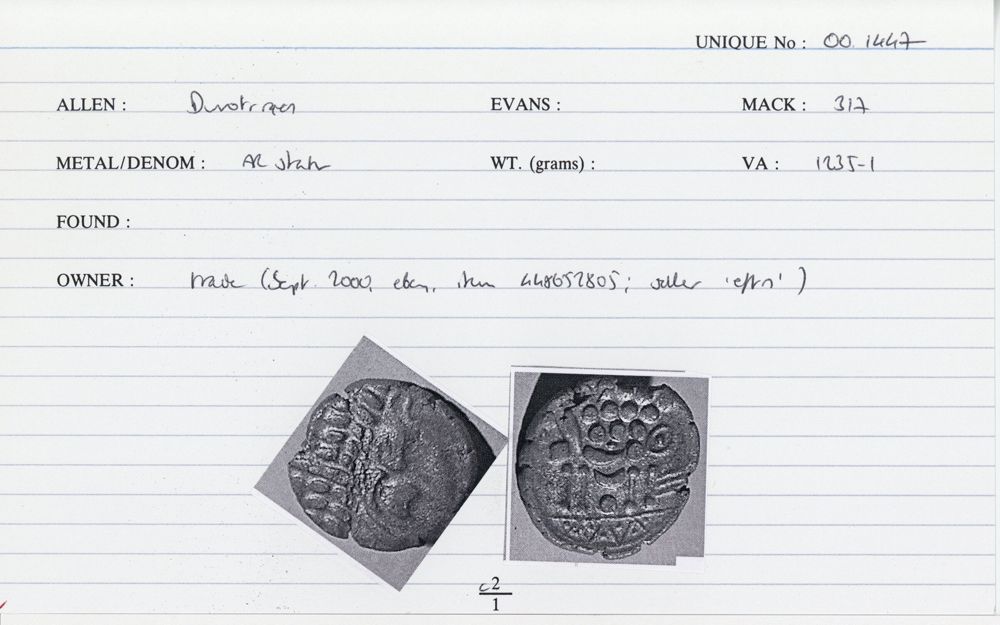 UNIQUE No : 00.1447
ALLEN : Durotriges EVANS : MACK : 317
METAL/DENOM : AR stater WT. (grams) : VA : 1235-1
FOUND :
OWNER : trade (Sept. 2000, ebay, item 448652805; seller ' ')
c2
1